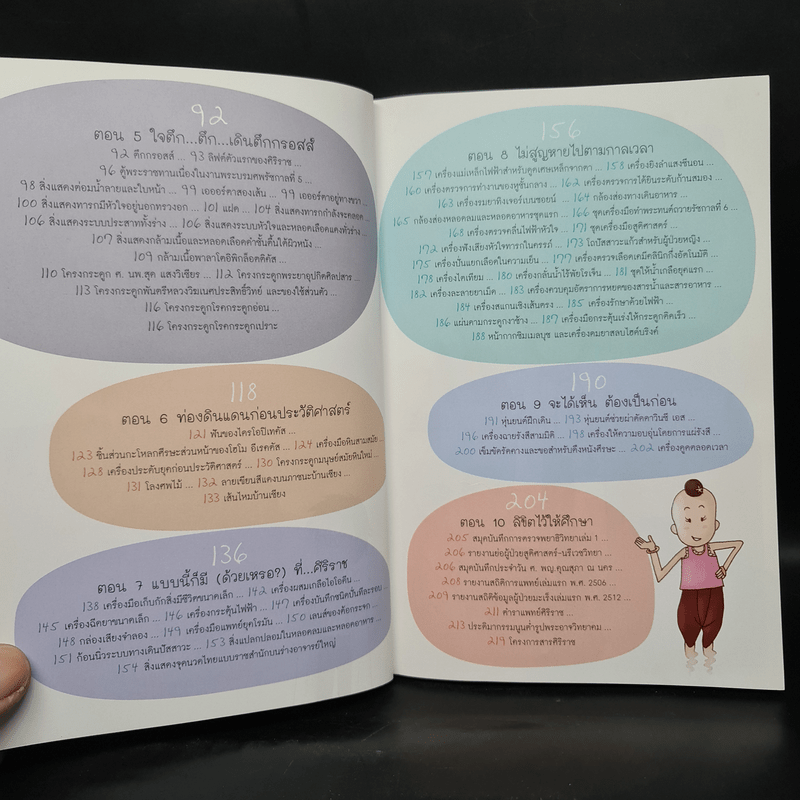 92
ตอน 5 ใจตึก...ตึก...เดินตึกกรอสส์
92 ตึกกรอสส์ ... 93 ลิฟต์ตัวแรกของศิริราช ...
96 ตู้พระราชทานเนื่องในงานพระบรมศพรัชกาลที่ 5 ...
98 สิ่งแสดงต่อมน้ำลายและใบหน้า ... 99 เออออร์ตาสองเส้น ... 99 เออออร์ตาอยู่ทางขวา ...
100 สิ่งแสดงทารกมีหัวใจอยู่นอกทรวงอก ... 101 แฝด ... 104 สิ่งแสดงทารกกำลังจะคลอด ...
106 สิ่งแสดงระบบประสาททั้งร่าง ... 106 สิ่งแสดงระบบหัวใจและหลอดเลือดแดงทั่วร่าง ...
107 สิ่งแสดงกล้ามเนื้อและหลอดเลือดดำชั้นตื้นใต้ผิวหนัง ...
109 กล้ามเนื้อพาลาโตอิฟิกล็อตติคัส ...
110 โครงกระดูก ศ. นพ.สุด แสงวิเชียร ... 112 โครงกระดูกพระยาอุปกิตศิลปสาร ...
113 โครงกระดูกพันตรีหลวงวิรเนตประสิทธิ์วิทย์ และของใช้ส่วนตัว ...
116 โครงกระดูกโรคกระดูกอ่อน ...
116 โครงกระดูกโรคกระดูกเปราะ
118
ตอน 6 ท่องดินแดนก่อนประวัติศาสตร์
121 ฟันของไครโอปิเทคัส ...
123 ชิ้นส่วนกะโหลกศีรษะส่วนหน้าของโฮโม อีเรคตัส ... 124 เครื่องมือหินสามสมัย ...
128 เครื่องประดับยุคก่อนประวัติศาสตร์ ... 130 โครงกระดูกมนุษย์สมัยหินใหม่ ...
131 โลงศพไม้ ... 132 ลายเขียนสีแดงบนภาชนะบ้านเชียง ...
133 เส้นไหมบ้านเชียง
136
ตอน 7 แบบนี้ก็มี (ด้วยเหรอ?) ที่...ศิริราช
138 เครื่องมือเก็บกักสิ่งมีชีวิตขนาดเล็ก ... 142 เครื่องผสมเกลือไอโอดีน ...
145 เครื่องฉีดยาขนาดเล็ก ... 146 เครื่องกระตุ้นไฟฟ้า ... 147 เครื่องบันทึกชนิดบันทึกละรอบ ...
148 กล้องเสียงจำลอง ... 149 เครื่องมือแพทย์ยุคโรมัน ... 150 เลนส์ของต้อกระจก ...
151 ก้อนนิ่วระบบทางเดินปัสสาวะ ... 153 สิ่งแปลกปลอมในหลอดลมและหลอดอาหาร ...
154 สิ่งแสดงจุดนวดไทยแบบราชสำนักบนร่างอาจารย์ใหญ่
156
ตอน 8 ไม่สูญหายไปตามกาลเวลา
157 เครื่องแม่เหล็กไฟฟ้าสำหรับดูดเศษเหล็กจากตา ... 158 เครื่องยิงลำแสงซีนอน ...
160 เครื่องตรวจการทำงานของหูชั้นกลาง ... 162 เครื่องตรวจการได้ยินระดับก้านสมอง ...
163 เครื่องรมยาทิงเจอร์เบนซอยน์ ... 164 กล้องส่องทางเดินอาหาร ...
165 กล้องส่องหลอดลมและหลอดอาหารชุดแรก ... 166 ชุดเครื่องมือทำพระทนต์ถวายรัชกาลที่ 6 ...
168 เครื่องตรวจคลื่นไฟฟ้าหัวใจ ... 171 ชุดเครื่องมือสูติศาสตร์ ...
172 เครื่องฟังเสียงหัวใจทารกในครรภ์ ... 173 โถปัสสาวะแก้วสำหรับผู้ป่วยหญิง ...
175 เครื่องปั่นแยกเลือดในความเย็น ... 177 เครื่องตรวจเลือดเคมีคลินิกกึ่งอัตโนมัติ ...
178 เครื่องไตเทียม ... 180 เครื่องกลั่นน้ำไร้พัยโรเจ็น ... 181 ชุดให้น้ำเกลือยุคแรก ...
182 เครื่องละลายยาเม็ด ... 183 เครื่องควบคุมอัตราการหยดของสารน้ำและสารอาหาร ...
184 เครื่องสแกนเชิงเส้นตรง ... 185 เครื่องรักษาด้วยไฟฟ้า ...
186 แผ่นดามกระดูกงาช้าง ... 187 เครื่องมือกระตุ้นเร่งให้กระดูกติดเร็ว ...
188 หน้ากากชิมเมลบุช และเครื่องดมยาสลบไฮด์บริงค์
190
ตอน 9 จะได้เห็น ต้องเป็นก่อน
191 หุ่นยนต์ฝึกเดิน ... 193 หุ่นยนต์ช่วยผ่าตัดดาวินชี เอส ...
196 เครื่องฉายรังสีสามมิติ ... 198 เครื่องให้ความอบอุ่นโดยการแผ่รังสี ...
200 เข็มขัดรัดคางและขอสำหรับดึงหนังศีรษะ ... 202 เครื่องดูดคลอดเวลา
204
ตอน 10 ลิขิตไว้ให้ศึกษา
205 สมุดบันทึกการตรวจพยาธิวิทยาเล่ม 1 ...
206 รายงานย่อผู้ป่วยสูติศาสตร์-นรีเวชวิทยา ...
206 สมุดบันทึกประจำวัน ศ. พญ.คุณสุภา ณ นคร ...
208 รายงานสถิติการแพทย์เล่มแรก พ.ศ. 2506 ...
209 รายงานสถิติข้อมูลผู้ป่วยมะเร็งเล่มแรก พ.ศ. 2512 ...
211 ตำราแพทย์ศิริราช ...
213 ประติมากรรมนูนต่ำรูปพระอาจวิทยาคม ...
219 โครงการสารศิริราช